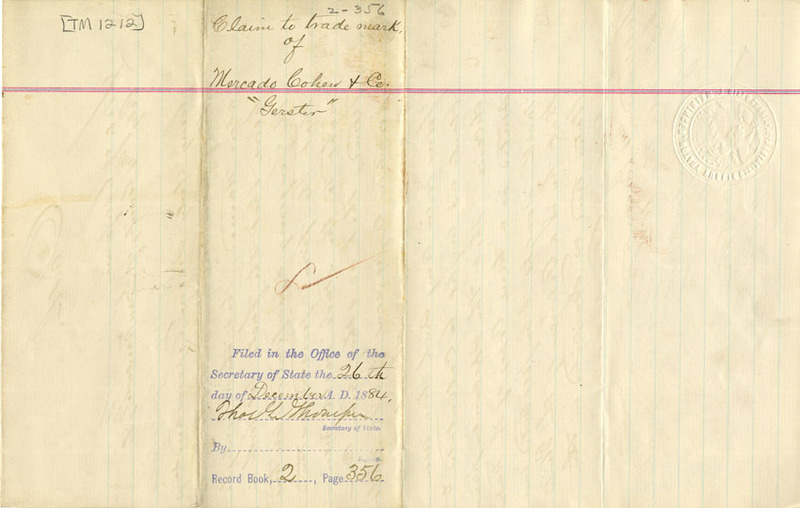 [TM 1212]
2-356
Claim to trade mark,
of
Mercado Cohen & Co.
"Gerster"
Filed in the Office of the
Secretary of State the 26th
day of December A. D. 1884,
Thos L. Thompson
Secretary of State.
By
Record Book, 2, Page 356